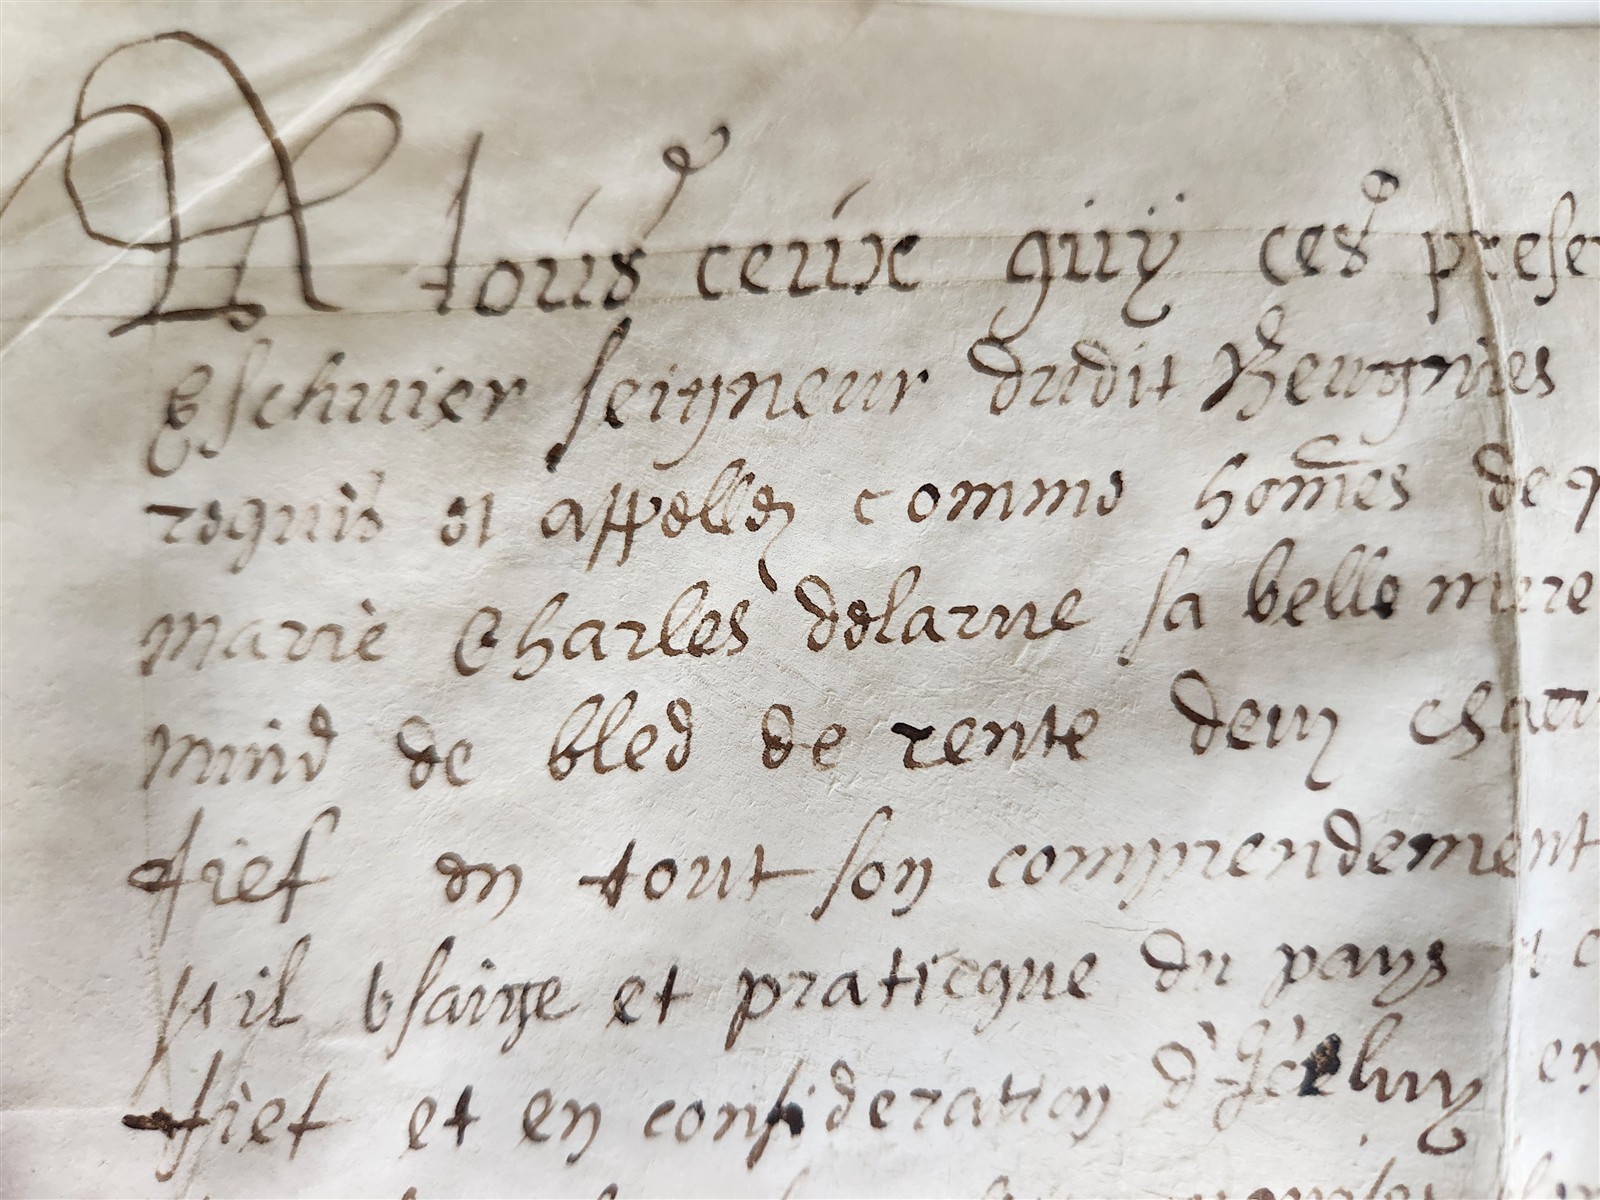 A tous ceux quy ces prese
Eschuier seigneur dudit Beugnies
requis et appellez comme hom̃es de
Marie Charles delarue sa belle mere
muid de bled de rente deux
fief en tout son comprendement
usaige et praticque du pays
fief et en consideration d'iceluy en